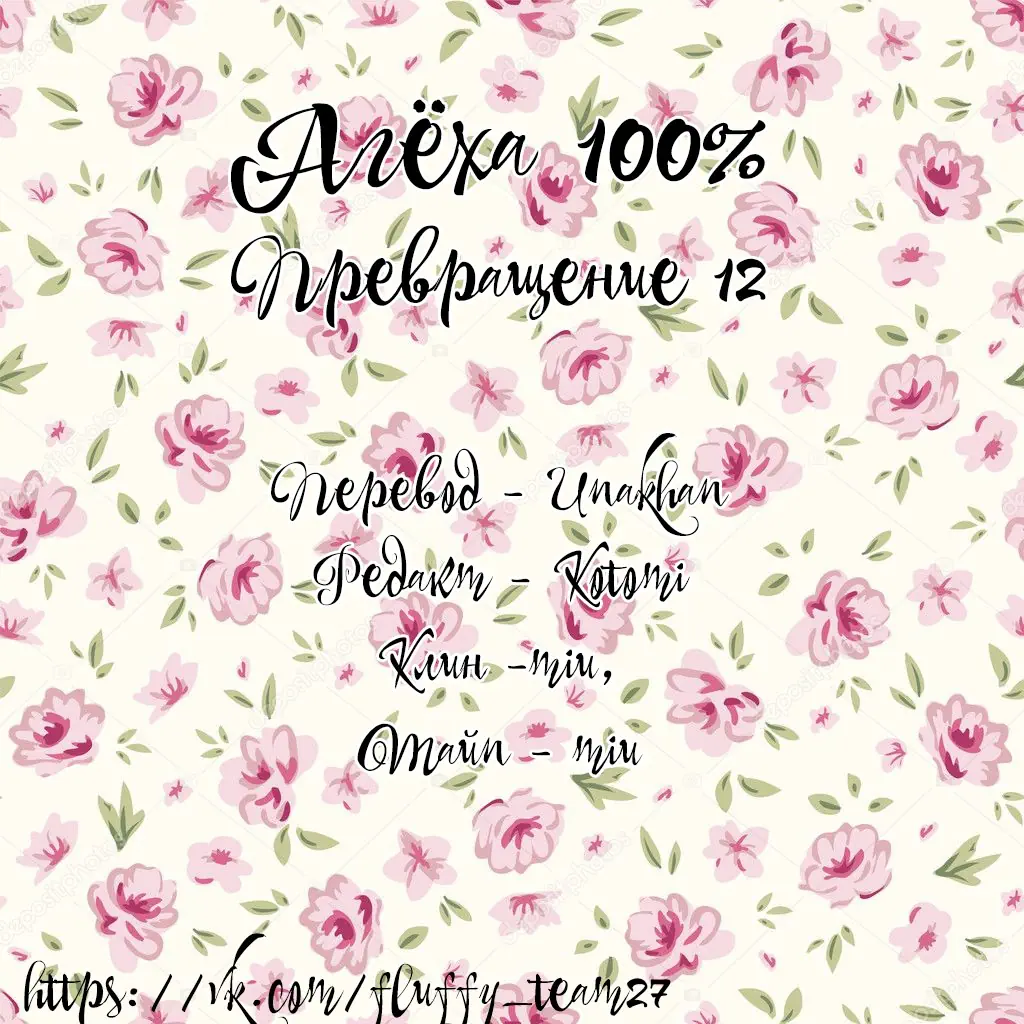 Агёха 100%
Превращение 12
Перевод - Unakhan
Редакт - Kotomi
Клин -miu,
Тайп - miu
https://vk.com/fluffy_team27